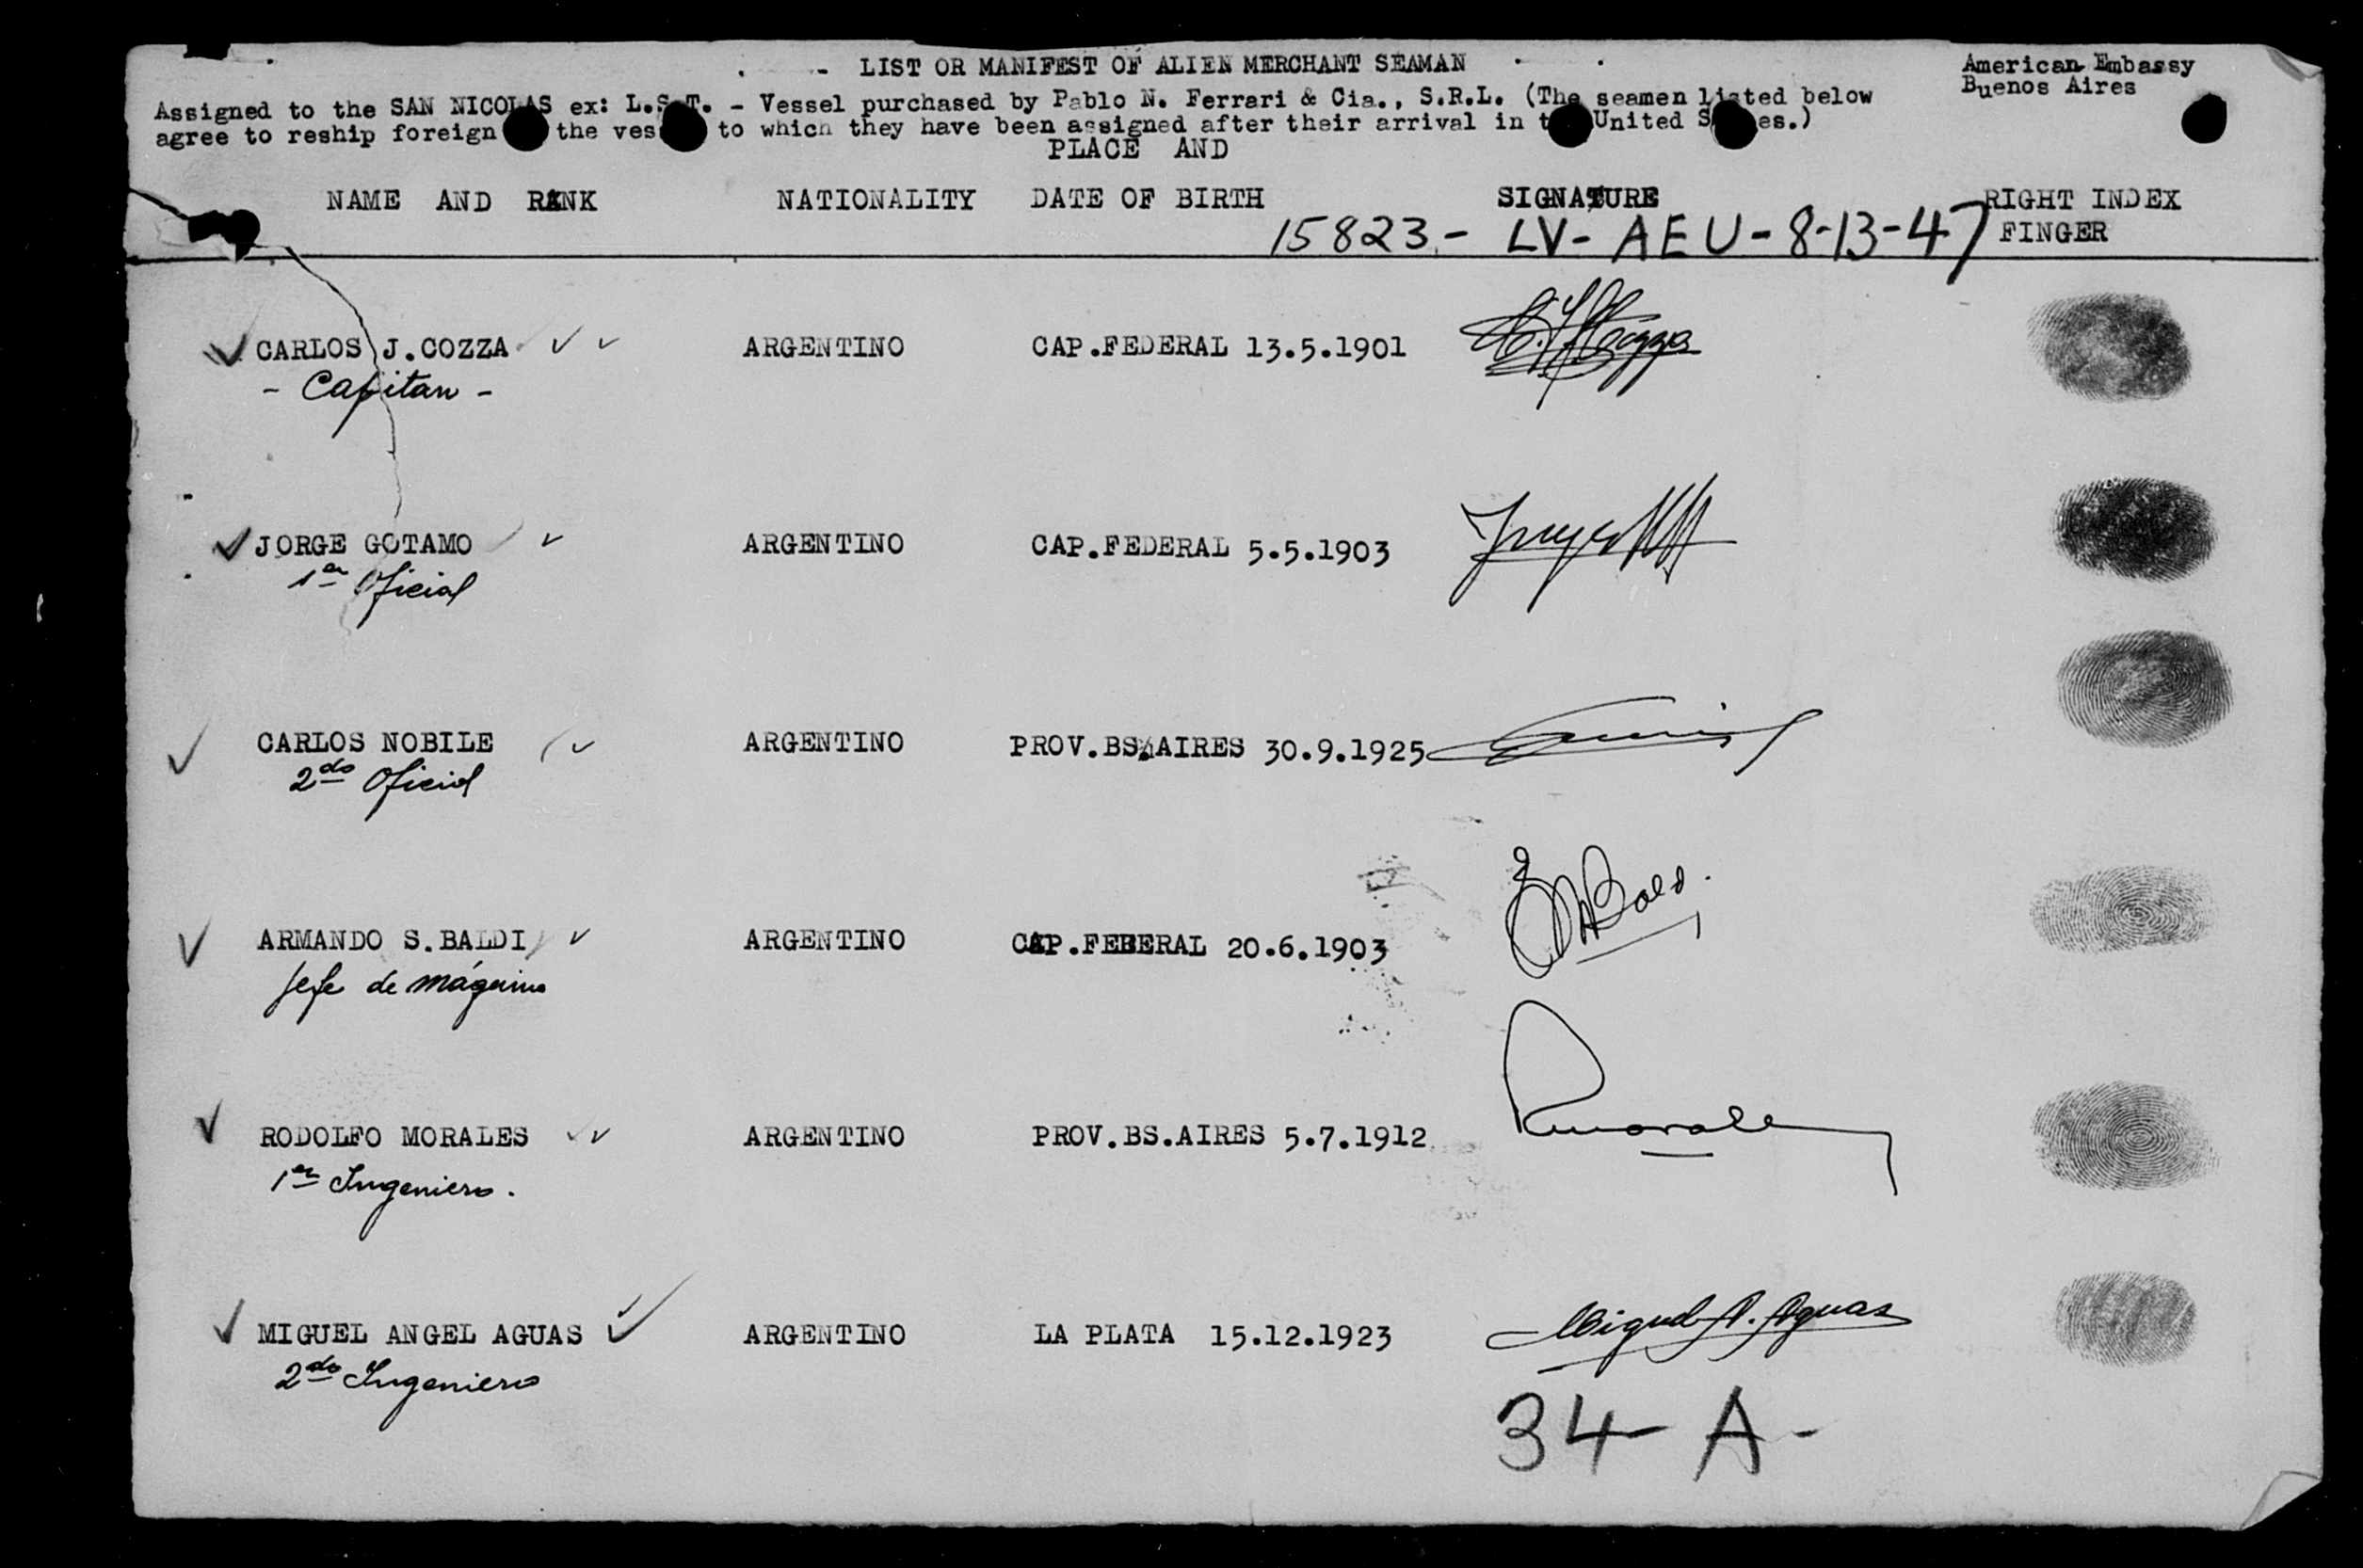 - LIST OR MANIFEST OF ALIEN MERCHANT SEAMAN
American Embassy
Buenos Aires
Assigned to the SAN NICOLAS ex: L.S.T. - Vessel purchased by Pablo N. Ferrari & Cia., S.R.L. (The seamen listed below
agree to reship foreign the ves to which they have been assigned after their arrival in t United S es.)
PLACE AND
NAME AND RANK NATIONALITY DATE OF BIRTH SIGNATURE RIGHT INDEX
FINGER
15823 - LV - AEU - 8-13-47
CARLOS J.COZZA ARGENTINO CAP.FEDERAL 13.5.1901 Cozza
- Capitan -
JORGE GOTAMO ARGENTINO CAP.FEDERAL 5.5.1903
1er Oficial
CARLOS NOBILE ARGENTINO PROV.BS.AIRES 30.9.1925
2do Oficial
ARMANDO S.BALDI ARGENTINO CAP.FEDERAL 20.6.1903
Jefe de máquina
RODOLFO MORALES ARGENTINO PROV.BS.AIRES 5.7.1912 RMorales
1er Ingeniero.
MIGUEL ANGEL AGUAS ARGENTINO LA PLATA 15.12.1923 Miguel A. Aguas
2do Ingeniero
34-A-